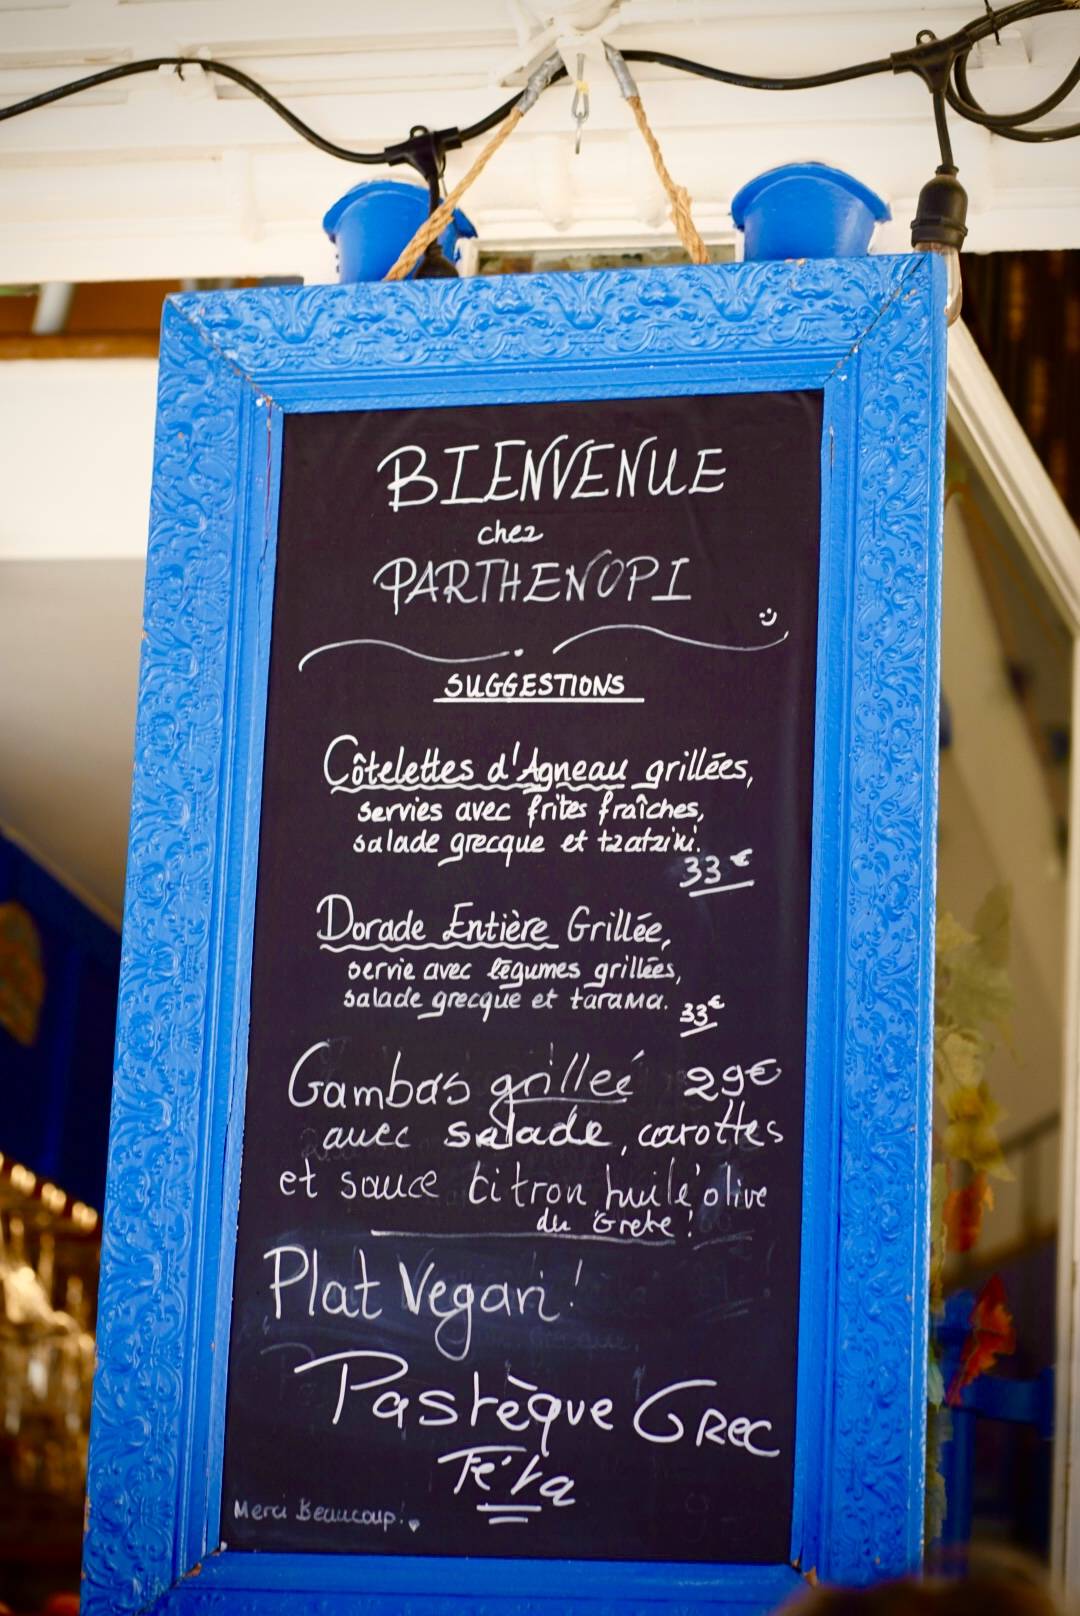 BIENVENUE
chez
PARTHENOPI
SUGGESTIONS
Côtelettes d'Agneau grillées,
servies avec frites fraîches,
salade grecque et tzatziki.
33€
Dorade Entière Grillée,
servie avec légumes grillées,
salade grecque et tarama.
33€
Gambas grilleé 29€
avec salade, carottes
et sauce citron huile'olive
du Grece!
Plat Vegan!
Pastèque Grec
Féta
Merci Beaucoup!